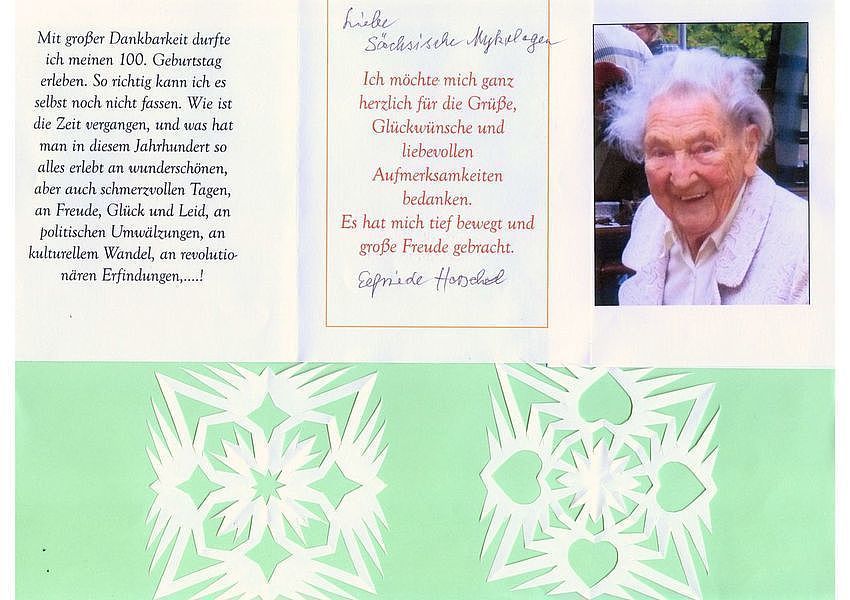 Mit großer Dankbarkeit durfte
ich meinen 100. Geburtstag
erleben. So richtig kann ich es
selbst noch nicht fassen. Wie ist
die Zeit vergangen, und was hat
man in diesem Jahrhundert so
alles erlebt an wunderschönen,
aber auch schmerzvollen Tagen,
an Freude, Glück und Leid, an
politischen Umwälzungen, an
kulturellem Wandel, an revolutio-
nären Erfindungen,....!
Liebe
Sächsische Mykologen
Ich möchte mich ganz
herzlich für die Grüße,
Glückwünsche und
liebevollen
Aufmerksamkeiten
bedanken.
Es hat mich tief bewegt und
große Freude gebracht.